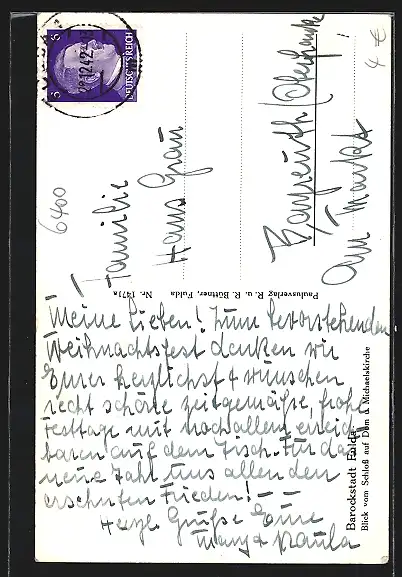 DEUTSCHES REICH
6
6
28.12.42
6400
4 €
Familie
Hans Grau
Bayreuth/Oberfranken
Am Markt
Paulusverlag R. u. R. Büttner, Fulda
Nr. 1471a
Barockstadt Fulda
Blick vom Schloß auf Dom u. Michaelskirche
Meine Lieben! Zum bevorstehenden
Weihnachtsfest denken wir
Eurer herzlichst & wünschen
recht schöne zeitgemäße, frohe
Festtage mit noch allem erreich
baren auf dem Tisch. Für das
neue Jahr uns allen den
ersehnten Frieden! - -
Herzl. Grüße Eure
Paula